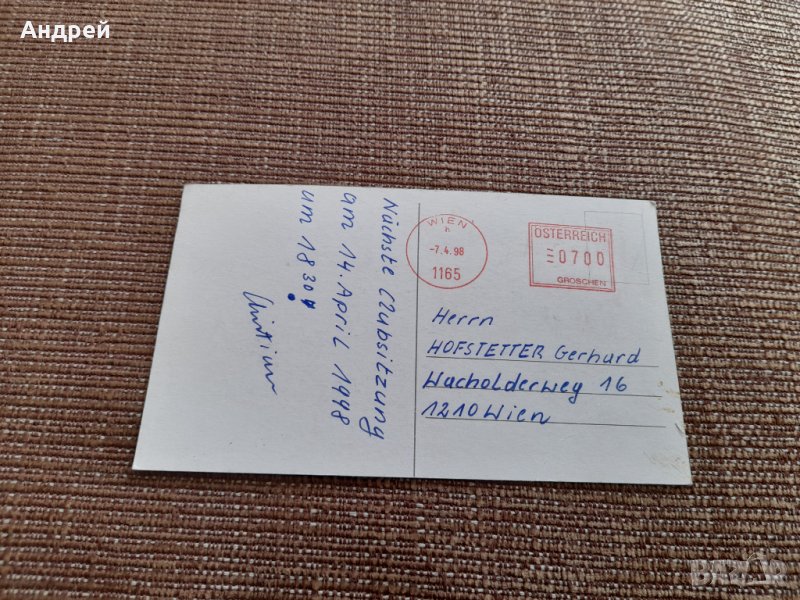 Андрей
Nächste Clubsitzung
am 14. April 1998
um 18 30
WIEN
-7.4.98
1165
ÖSTERREICH
0700
GROSCHEN
Herrn
HOFSTETTER Gerhard
Wacholderweg 16
1210 Wien
BAZAR